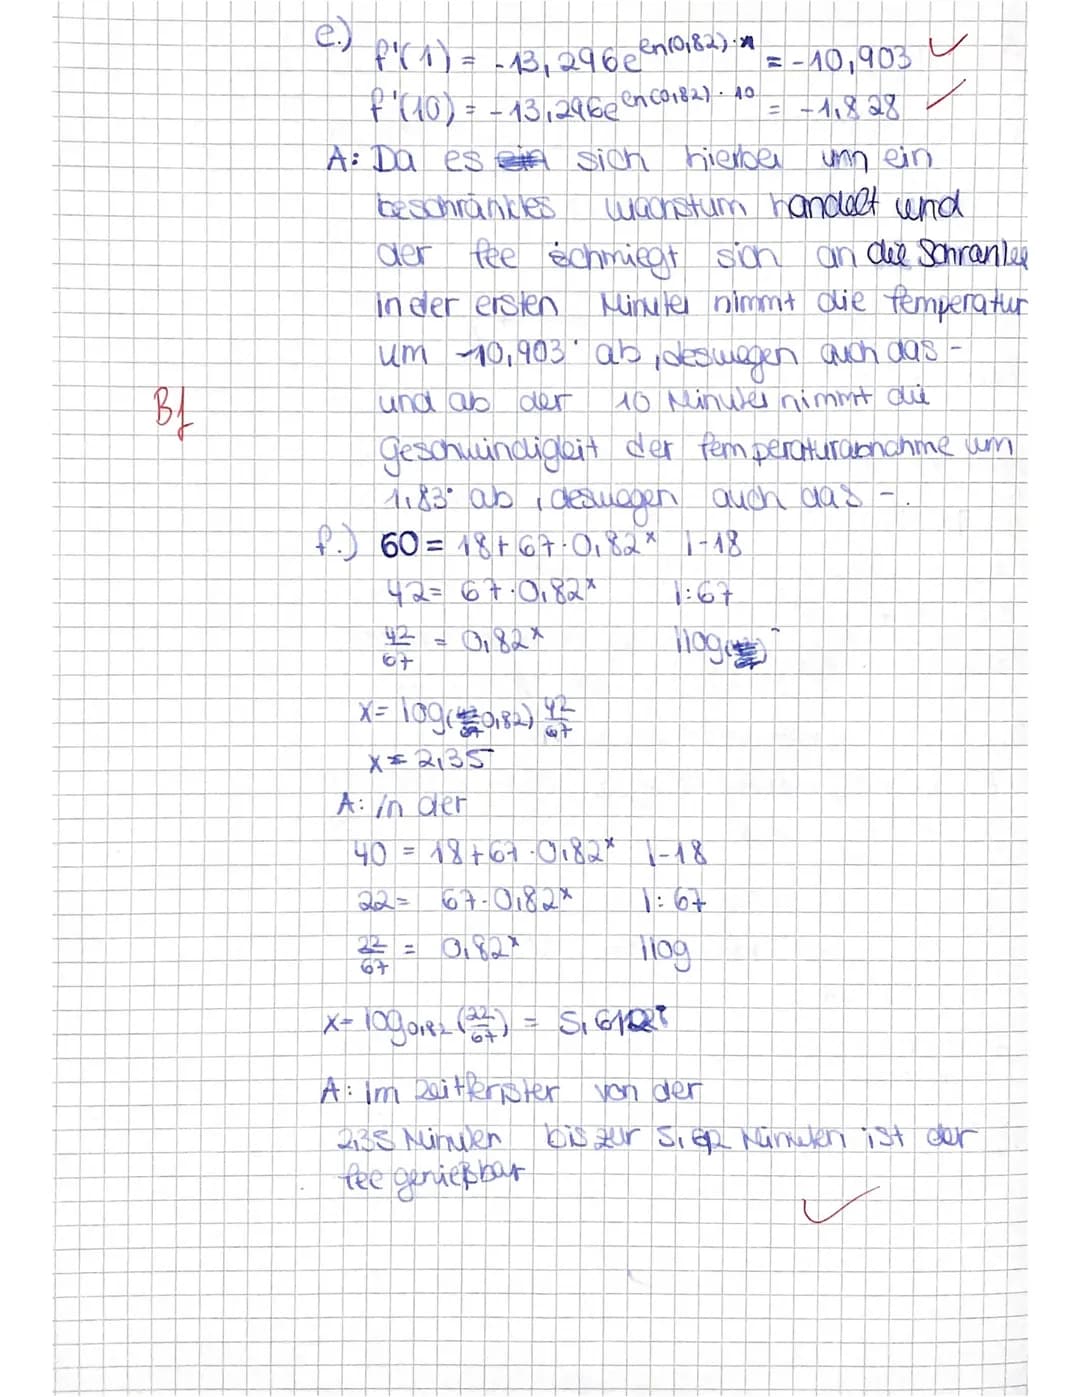 e.)
f'(1) = -13,296e^ln(0,82)·1 = -10,903 ✓
f'(10) = -13,296e^ln(0,82)·10 = -1,828 ✓
A: Da es sich hierbei um ein
beschränktes Wachstum handelt und
der Tee schmiegt sich an die Schranke
in der ersten Minute nimmt die Temperatur
um -10,903° ab, deswegen auch das -
Bf und ab der 10 Minute nimmt die
Geschwindigkeit der Temperaturabnahme um
1,83° ab, deswegen auch das -.
f.) 60 = 18+67·0,82^x |-18
42= 67·0,82^x |:67
42/67 = 0,82^x |log
x= log(0,82) 42/67
x= 2,35
A: In der
40 = 18+67·0,82^x |-18
22= 67·0,82^x |:67
22/67 = 0,82^x |log
x= log0,82 (22/67) = 5,61
A: Im Zeitfenster von der
2,35 Minuten bis zur 5,62 Minuten ist der
Tee genießbar
✓